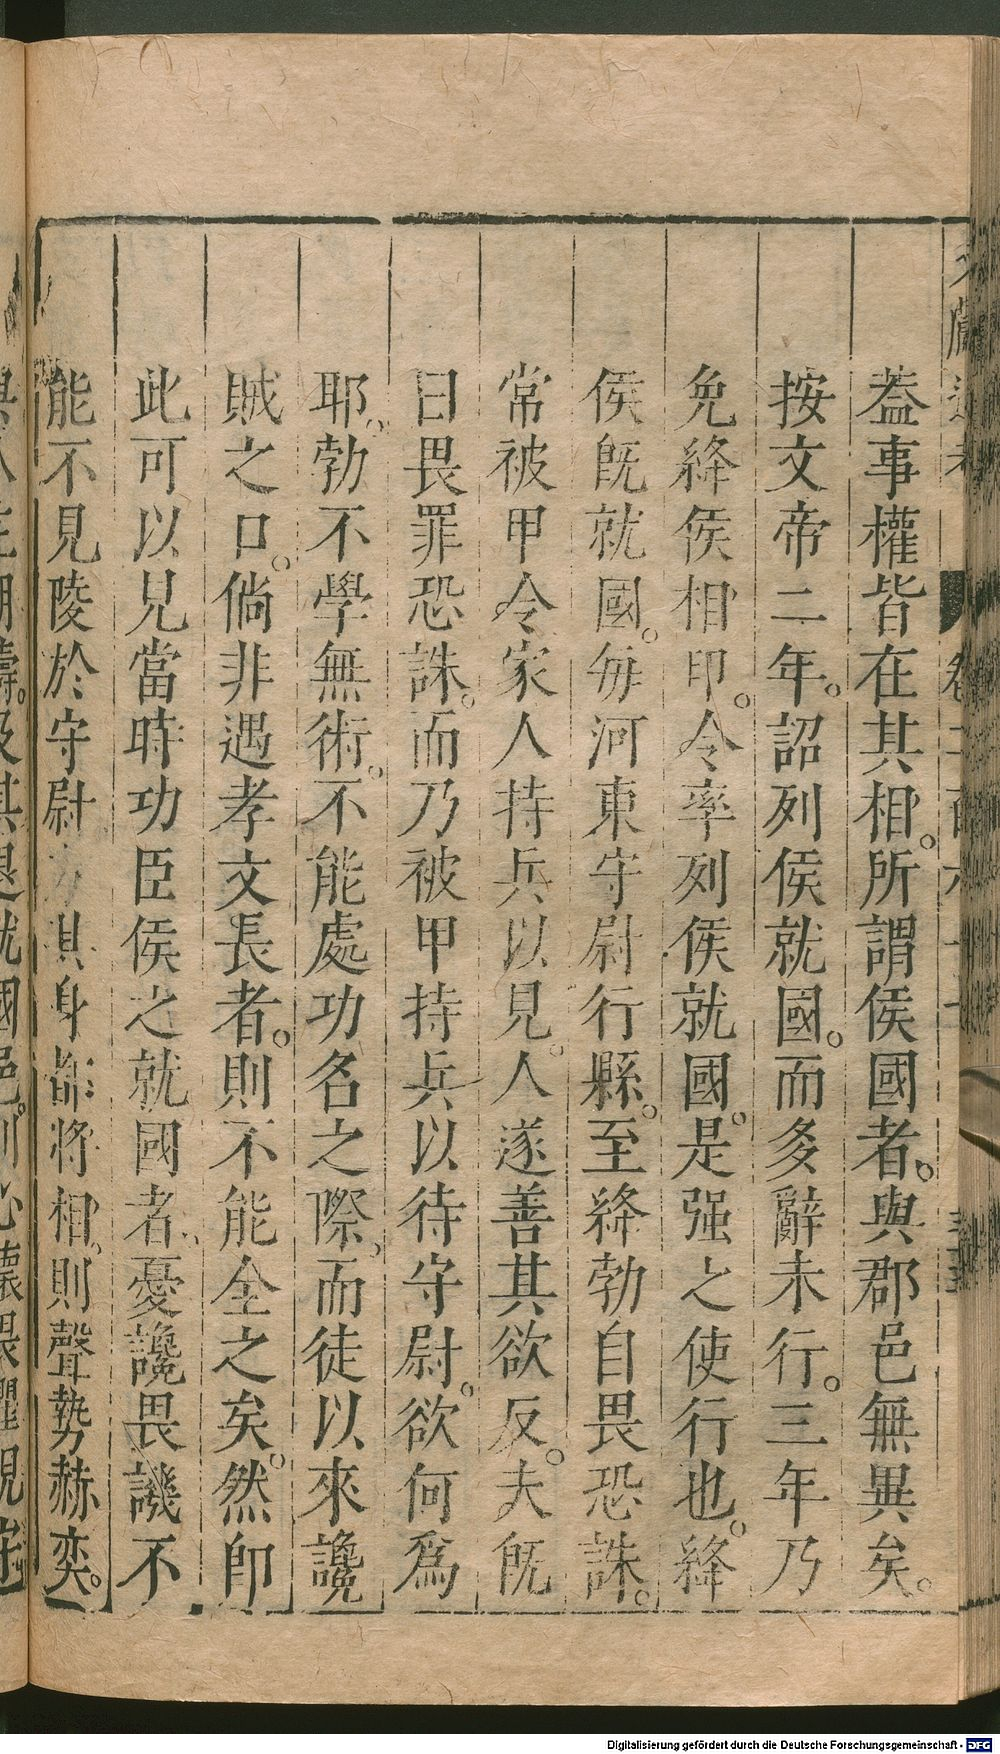 蓋事權皆在其相。所謂侯國者。與郡邑無異矣。
按文帝二年。詔列侯就國。而多辭未行。三年乃
免絳侯相印。令率列侯就國。是强之使行也。絳
侯旣就國。每河東守尉行縣。至絳勃自畏恐誅。
常被甲令家人持兵以見。人遂善其欲反。夫旣
曰畏罪恐誅。而乃被甲持兵以待守尉。欲何爲
耶。勃不學無術。不能處功名之際。而徒以來讒
賊之口。倘非遇孝文長者。則不能全之矣。然卽
此可以見當時功臣侯之就國者、憂讒畏譏不
能不見陵於守尉 其身都將相。則聲勢赫奕。
及其退就國邑。則必懷畏懼
Digitalisierung gefördert durch die Deutsche Forschungsgemeinschaft - DFG